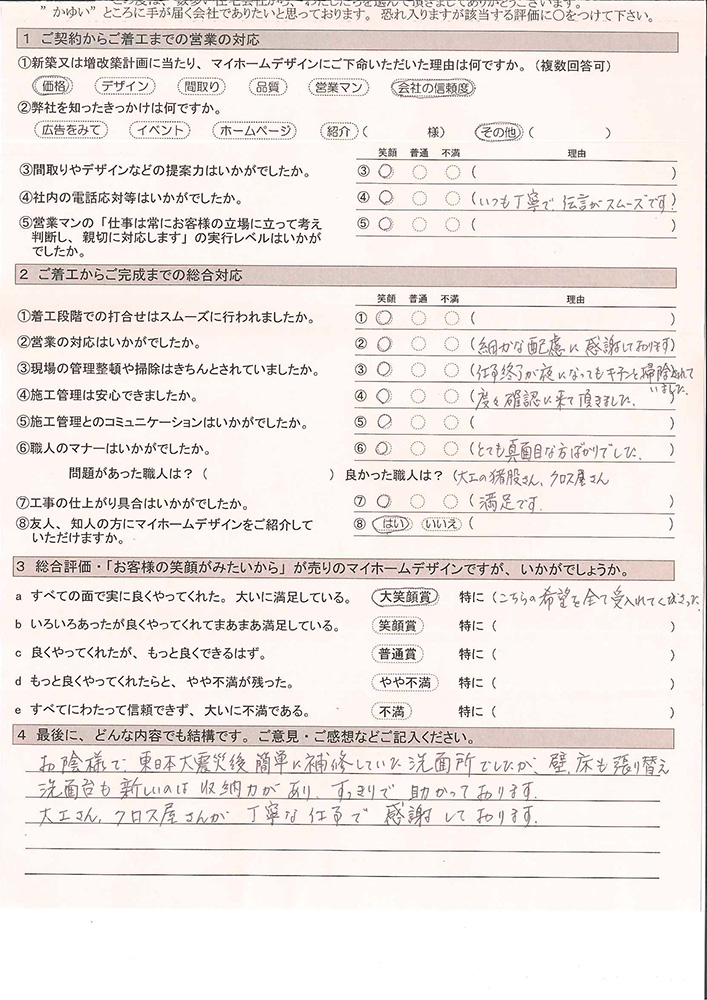 ”かゆい”ところに手が届く会社でありたいと思っております。恐れ入りますが該当する評価に○をつけて下さい。
1 ご契約からご着工までの営業の対応
①新築又は増改築計画に当たり、マイホームデザインにご下命いただいた理由は何ですか。(複数回答可)
価格 デザイン 間取り 品質 営業マン 会社の信頼度
②弊社を知ったきっかけは何ですか。
広告をみて イベント ホームページ 紹介( 様) その他( )
笑顔 普通 不満 理由
③間取りやデザインなどの提案力はいかがでしたか。 ③ ( )
④社内の電話応対等はいかがでしたか。 ④ (いつも丁寧で、伝言がスムーズです!)
⑤営業マンの「仕事は常にお客様の立場に立って考え ⑤ ( )
判断し、親切に対応します」の実行レベルはいかが
でしたか。
2 ご着工からご完成までの総合対応
笑顔 普通 不満 理由
①着工段階での打合せはスムーズに行われましたか。 ① ( )
②営業の対応はいかがでしたか。 ② (細かな配慮に感謝しております)
③現場の管理整頓や掃除はきちんとされていましたか。 ③ (仕事終了が夜になってもキチンと掃除されて
いました。)
④施工管理は安心できましたか。 ④ (度々確認に来て頂きました。 )
⑤施工管理とのコミュニケーションはいかがでしたか。 ⑤ ( )
⑥職人のマナーはいかがでしたか。 ⑥ (とても真面目な方ばかりでした。 )
問題があった職人は?( ) 良かった職人は?(大工の猪股さん、クロス屋さん
⑦工事の仕上がり具合はいかがでしたか。 ⑦ (満足です。 )
⑧友人、知人の方にマイホームデザインをご紹介して ⑧ はい いいえ ( )
いただけますか。
3 総合評価・「お客様の笑顔がみたいから」が売りのマイホームデザインですが、いかがでしょうか。
a すべての面で実に良くやってくれた。大いに満足している。 大笑顔賞 特に(こちらの希望を全て受入れてくださった。
b いろいろあったが良くやってくれてまあまあ満足している。 笑顔賞 特に( )
c 良くやってくれたが、もっと良くできるはず。 普通賞 特に( )
d もっと良くやってくれたらと、やや不満が残った。 やや不満 特に( )
e すべてにわたって信頼できず、大いに不満である。 不満 特に( )
4 最後に、どんな内容でも結構です。ご意見・ご感想などご記入ください。
お陰様で、東日本大震災後簡単に補修していた洗面所でしたが、壁、床も張り替え
洗面台も新しいのは収納力があり、すっきりで助かっております。
大工さん、クロス屋さんが丁寧な仕事で感謝しております。